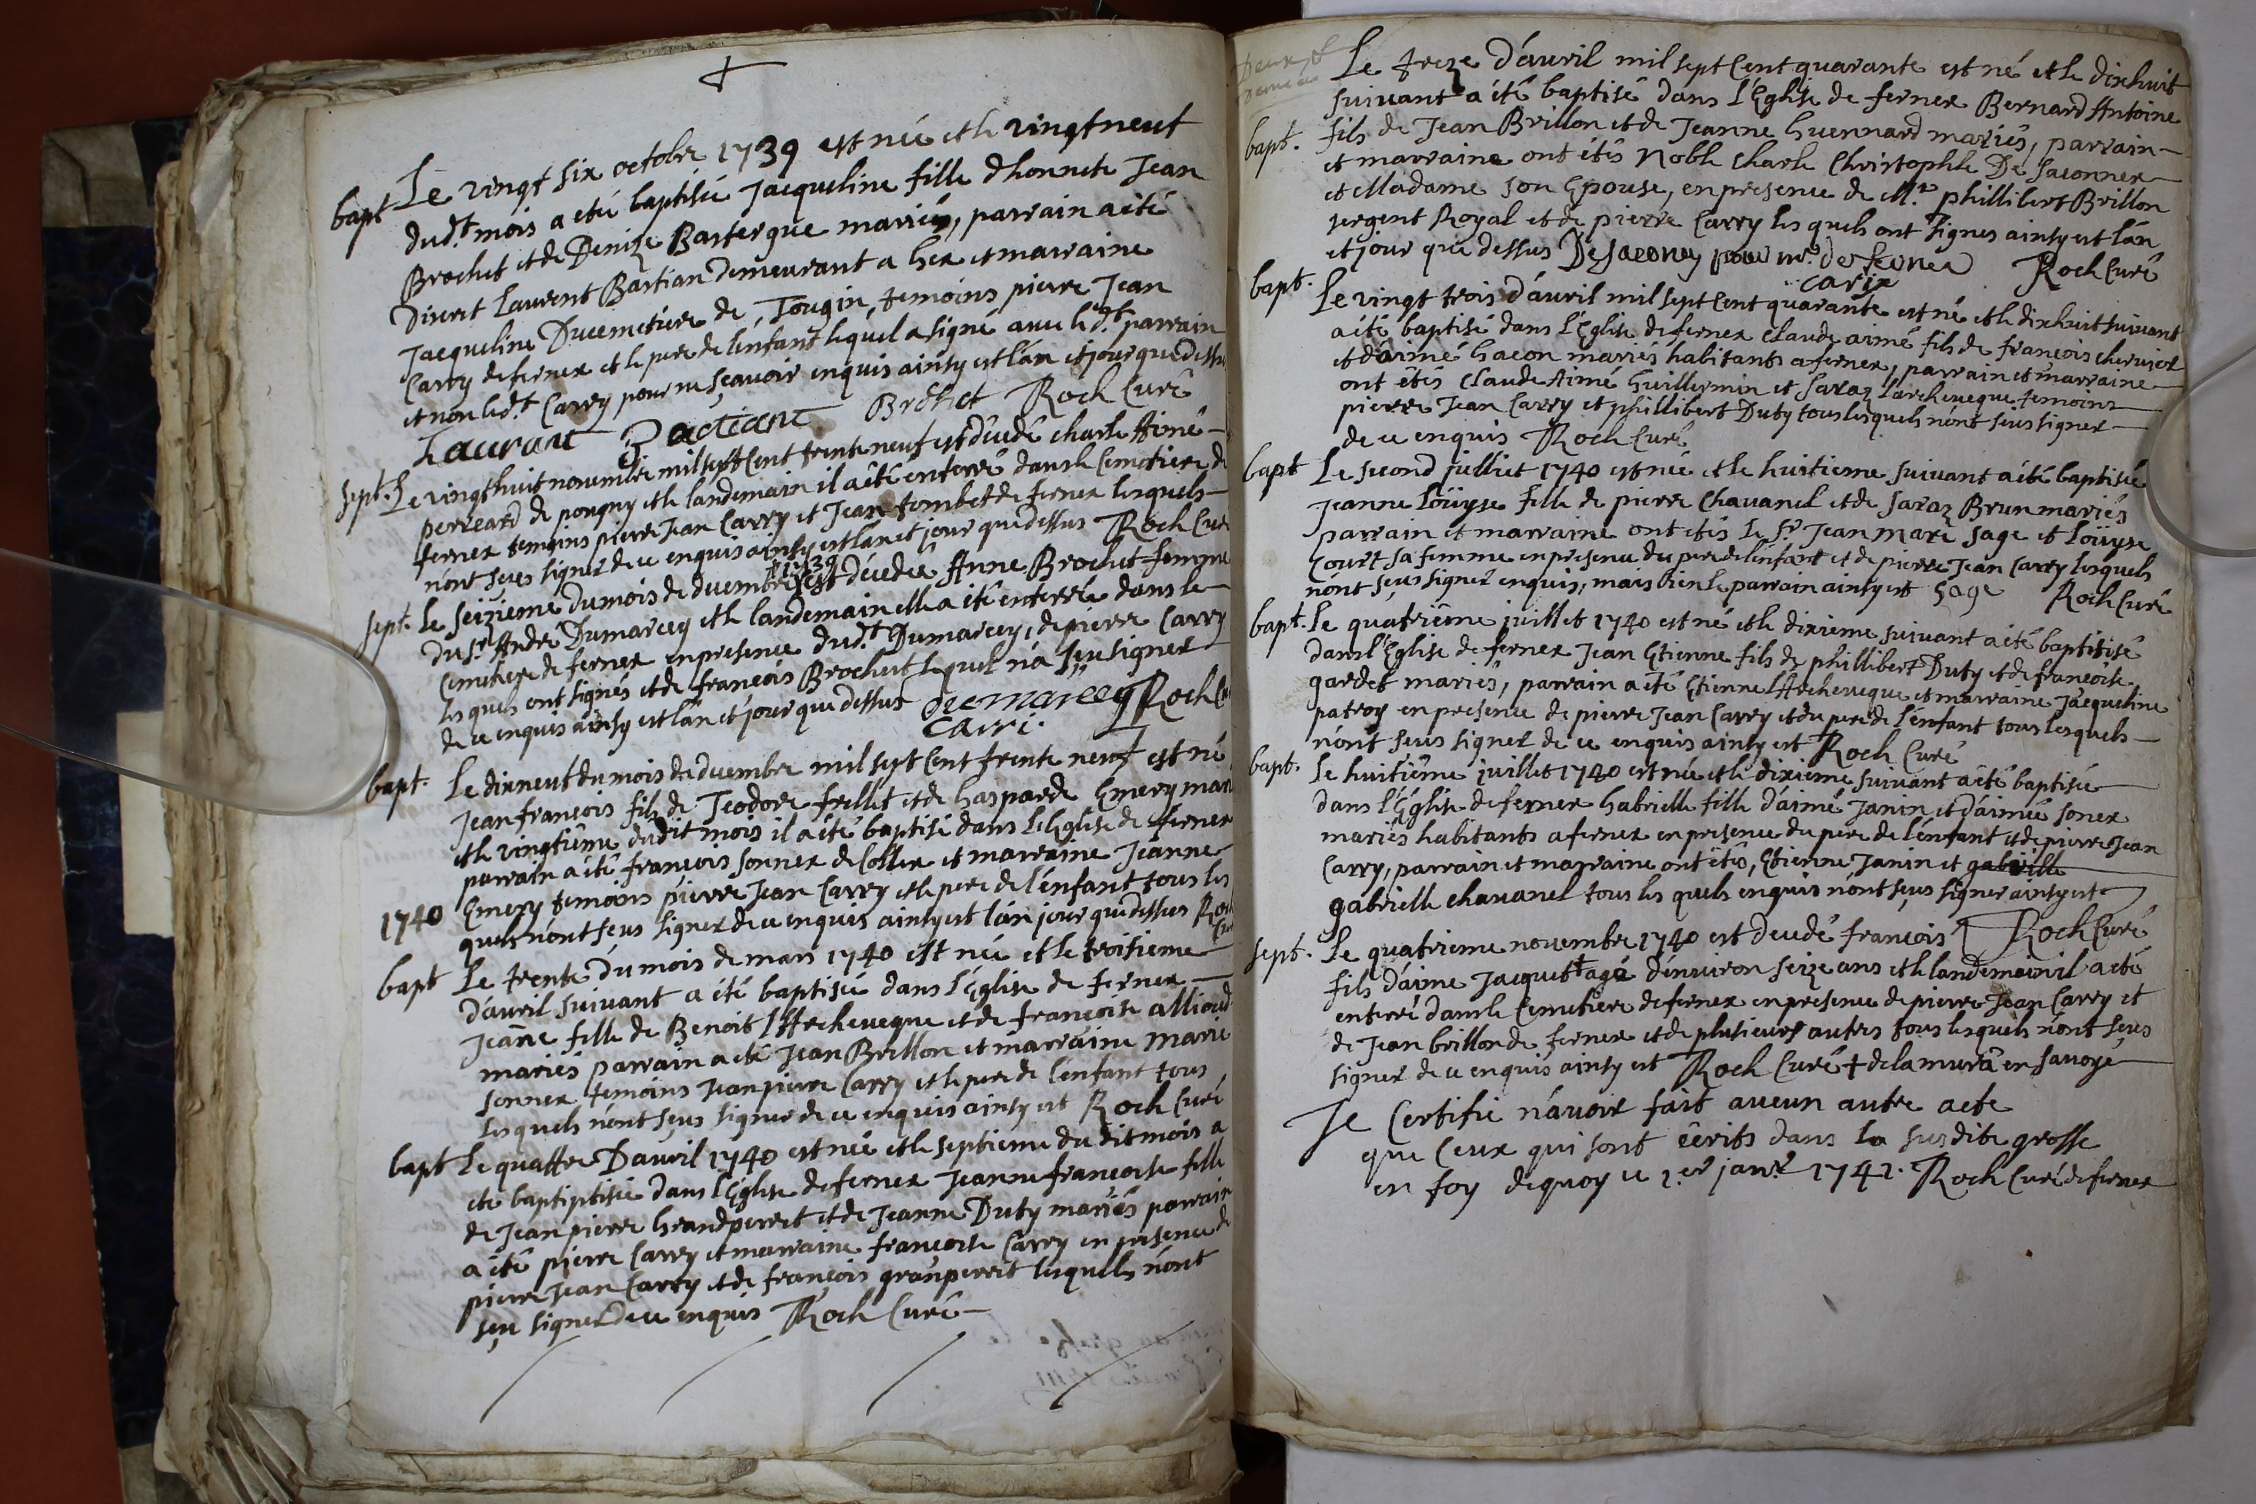 Le vingt six octobre 1739 est née et le vingt neuf
bapt dud.t mois a eté baptisée Jacqueline fille d'honnete Jean
Brochet et de Denize Basterque mariés, parrain a eté
Discret Laurent Bastian demeurant a Gex et marraine
Jacqueline Ducemetiere de Tougin, temoins pierre Jean
Carry de fernex et le pere de lenfant lequel a signé avec led.t parrain
et non led.t Carry pour ne sçavoir enquis ainsy est l'an et jour que dessus
Lauran Bactiant Brochet Roch Curé
sept. Le vingt huit novembre mil sept Cent trente neuf est décedé charle Aimé
perreard de pougny et le landemain il a été enterré dans le Cemetiere de
fernex temoins pierre Jean Carry et Jean tombet de fernex lesquels
n'ont seus signer de ce enquis ainsy est l'an et jour que dessus Roch Curé
1739
sept. Le seizieme du mois de decembre est décedée Anne Brochet femme
du S.r André Dumarcey et le landemain elle a été enterrée dans le
Cemetiere de fernex en presence dud.t Dumarcey, de pierre Carry
lesquels ont signés et de françois Brochet lequel n'a seu signer
de ce enquis ainsy est l'an et jour que dessus Demarcey Roch Cu
Carri
bapt. Le dixneuf du mois de decembre mil sept Cent trente neuf est né
Jean françois fils de Teodore frellet et de Gasparde Emery mari
et le vingtiême dudit mois il a été baptisé dans l'Eglise de fernex
parrain a été françois sonnex de Collex et marraine Jeanne
Emery temoins pierre Jean Carry et le pere de l'enfant tous les
1740 quels n'ont seus signer de ce enquis ainsy est l'an jour que dessus Roch
Curé
bapt Le trente du mois de mars 1740 est née et le troisieme
d'avril suivant a été baptisée dans l'Eglise de fernex
Jeanne fille de Benoit l'Archeveque et de françoise allioud
mariés parrain a eté Jean Brillon et marraine marie
sonnex temoins Jean pierre Carry et le pere de l'enfant tous
lesquels n'ont seus signer de ce enquis ainsy est Roch Curé
bapt Le quattre D'avril 1740 est née et le septieme du dit mois a
eté baptiptisée dans l'Eglise de fernex Jeanne françoise fille
de Jean pierre Grandperret et de Jeanne Duty mariés parrain
a été pierre Carry et marraine françoise Carry en presence de
pierre Jean Carry et de françois granperret lesquels n'ont
seu signer de ce enquis Roch Curé
Le treze d'avril mil sept Cent quarante est né et le dixhuit
suivant a été baptisé dans l'Eglise de fernex Bernard Antoine
bapt. fils de Jean Brillon et de Jeanne Guennard mariés, parrain
et marraine ont étés Noble Charle Christophle De Saconnex
et Madame son Epouse, en presence de M.r phillibert Brillon
sergent Royal et de pierre Carry les quels ont signes ainsy est l'an
et jour que dessus DeSacony pour m.r de fernéx Roch Curé
Carix
bapt. Le vingt trois d'avril mil sept Cent quarante est né et le dixhuit suivant
a été baptisé dans l'Eglise de fernex Claude aimé fils de françois chervier
et d'aimé Gacon mariés habitants a fernex, parrain et marraine
ont étés Claude Aimé Guillermin et Saraz l'archeveque temoins
pierre Jean Carry et phillibert Duty tous lesquels n'ont seus signer
de ce enquis Roch Curé
bapt Le second julliet 1740 est née et le huitieme suivant a été baptisée
Jeanne Loüyse fille de pierre Chavanel et de Saraz Brun mariés
parrain et marraine ont etés Le S.r Jean marc Sage et Loüyse
Court sa femme en presence du pere de l'enfant et de pierre Jean Carry lesquels
n'ont seus signer enquis, mais bien le parrain ainsy est Sage Roch Curé
bapt. Le quatriême juillet 1740 est né et le dixieme suivant a été baptisé
dans l'Eglise de fernex Jean Etienne fils de phillibert Duty et de françoise
gardet mariés, parrain a été Etienne l'Archeveque et marraine Jacqueline
patroy en presence de pierre Jean Carry et du pere de l'enfant tous lesquels
n'ont seus signer de ce enquis ainsy est Roch Curé
bapt. Le huitiême juillet 1740 est née et le dixieme suivant a été baptisée
dans l'Eglise de fernex Gabrielle fille d'aimé Janin et d'aimée sonex
mariés habitants a fernex en presence du pere de l'enfant et de pierre Jean
Carry, parrain et marraine ont étés, Etienne Janin et gabrielle
gabrielle chavanel tous les quels enquis n'ont seus signer ainsy est
Roch Curé
sept. Le quatrieme novembre 1740 est decedé françois
fils d'aime Jacquet + agé d'environ seize ans et le landemain il a été
enterré dans le Cemetiere de fernex en presence de pierre Jean Carry et
de Jean brillon de fernex et de plusieurs autres tous lesquels n'ont seus
signer de ce enquis ainsy est Roch Curé + de la mura en savoye
Je Certifie n'avoir fait aucun autre acte
que Ceux qui sont êcrits dans la susdite grosse
en foy dequoy ce 1.er janv.r 1741. Roch Curé de fernex